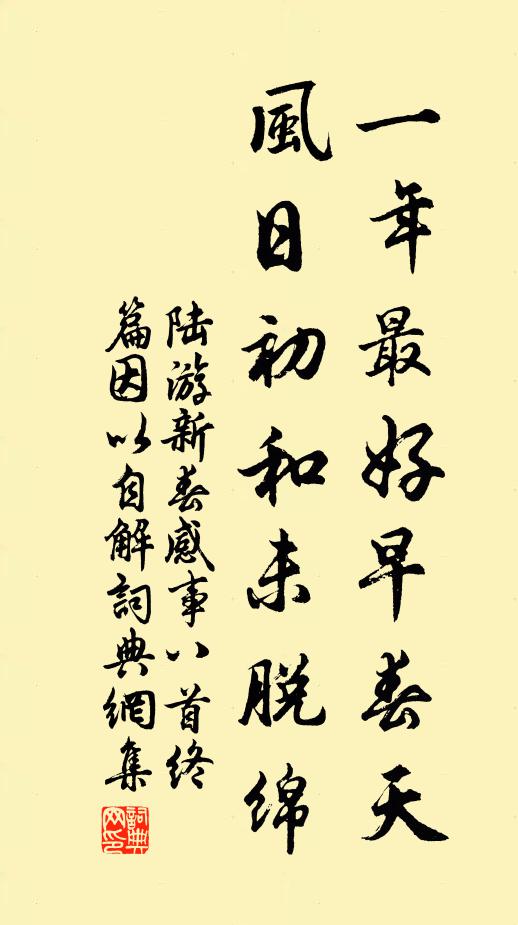 一年最好早春天
風日初和未脱綿
陆游新春感事八首终
篇因以自解詞典網集
詞典網印